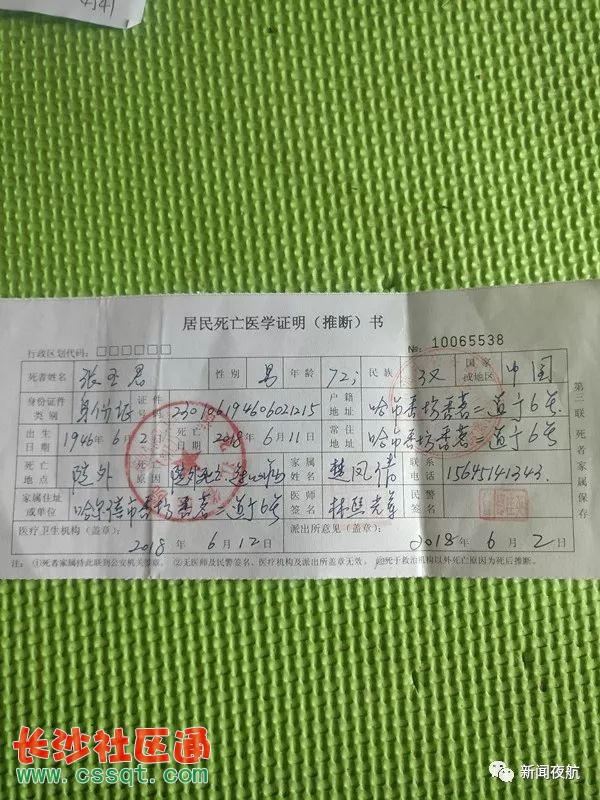 居民死亡医学证明（推断）书
行政区划代码：□□□□□□ №: 10065538
死者姓名 张玉君 性别 男 年龄 72岁 民族 汉 国家或地区 中国
身份证件类别 身份证 证件号码 230106194606021215 户籍地址 哈市香坊香茗二道于6号
出生日期 1946年6月2日 死亡日期 2018年6月11日 常住地址 哈市香坊香茗二道于6号
死亡地点 院外 死亡原因 院外死亡 家属姓名 联系电话 15645141343
家属住址或单位 哈尔滨市香坊香茗二道于6号 医师签名 民警签名
医疗卫生机构（盖章） 派出所意见（盖章）
2018年6月12日 2018年6月2日
注：①死者家属持此联到公安机关签章。②无医师及民警签名、医疗机构及派出所盖章无效。③死于救治机构以外死亡原因为死后推断。
第三联 死者家属保存
长沙社区通
www.cssqt.com
新闻夜航